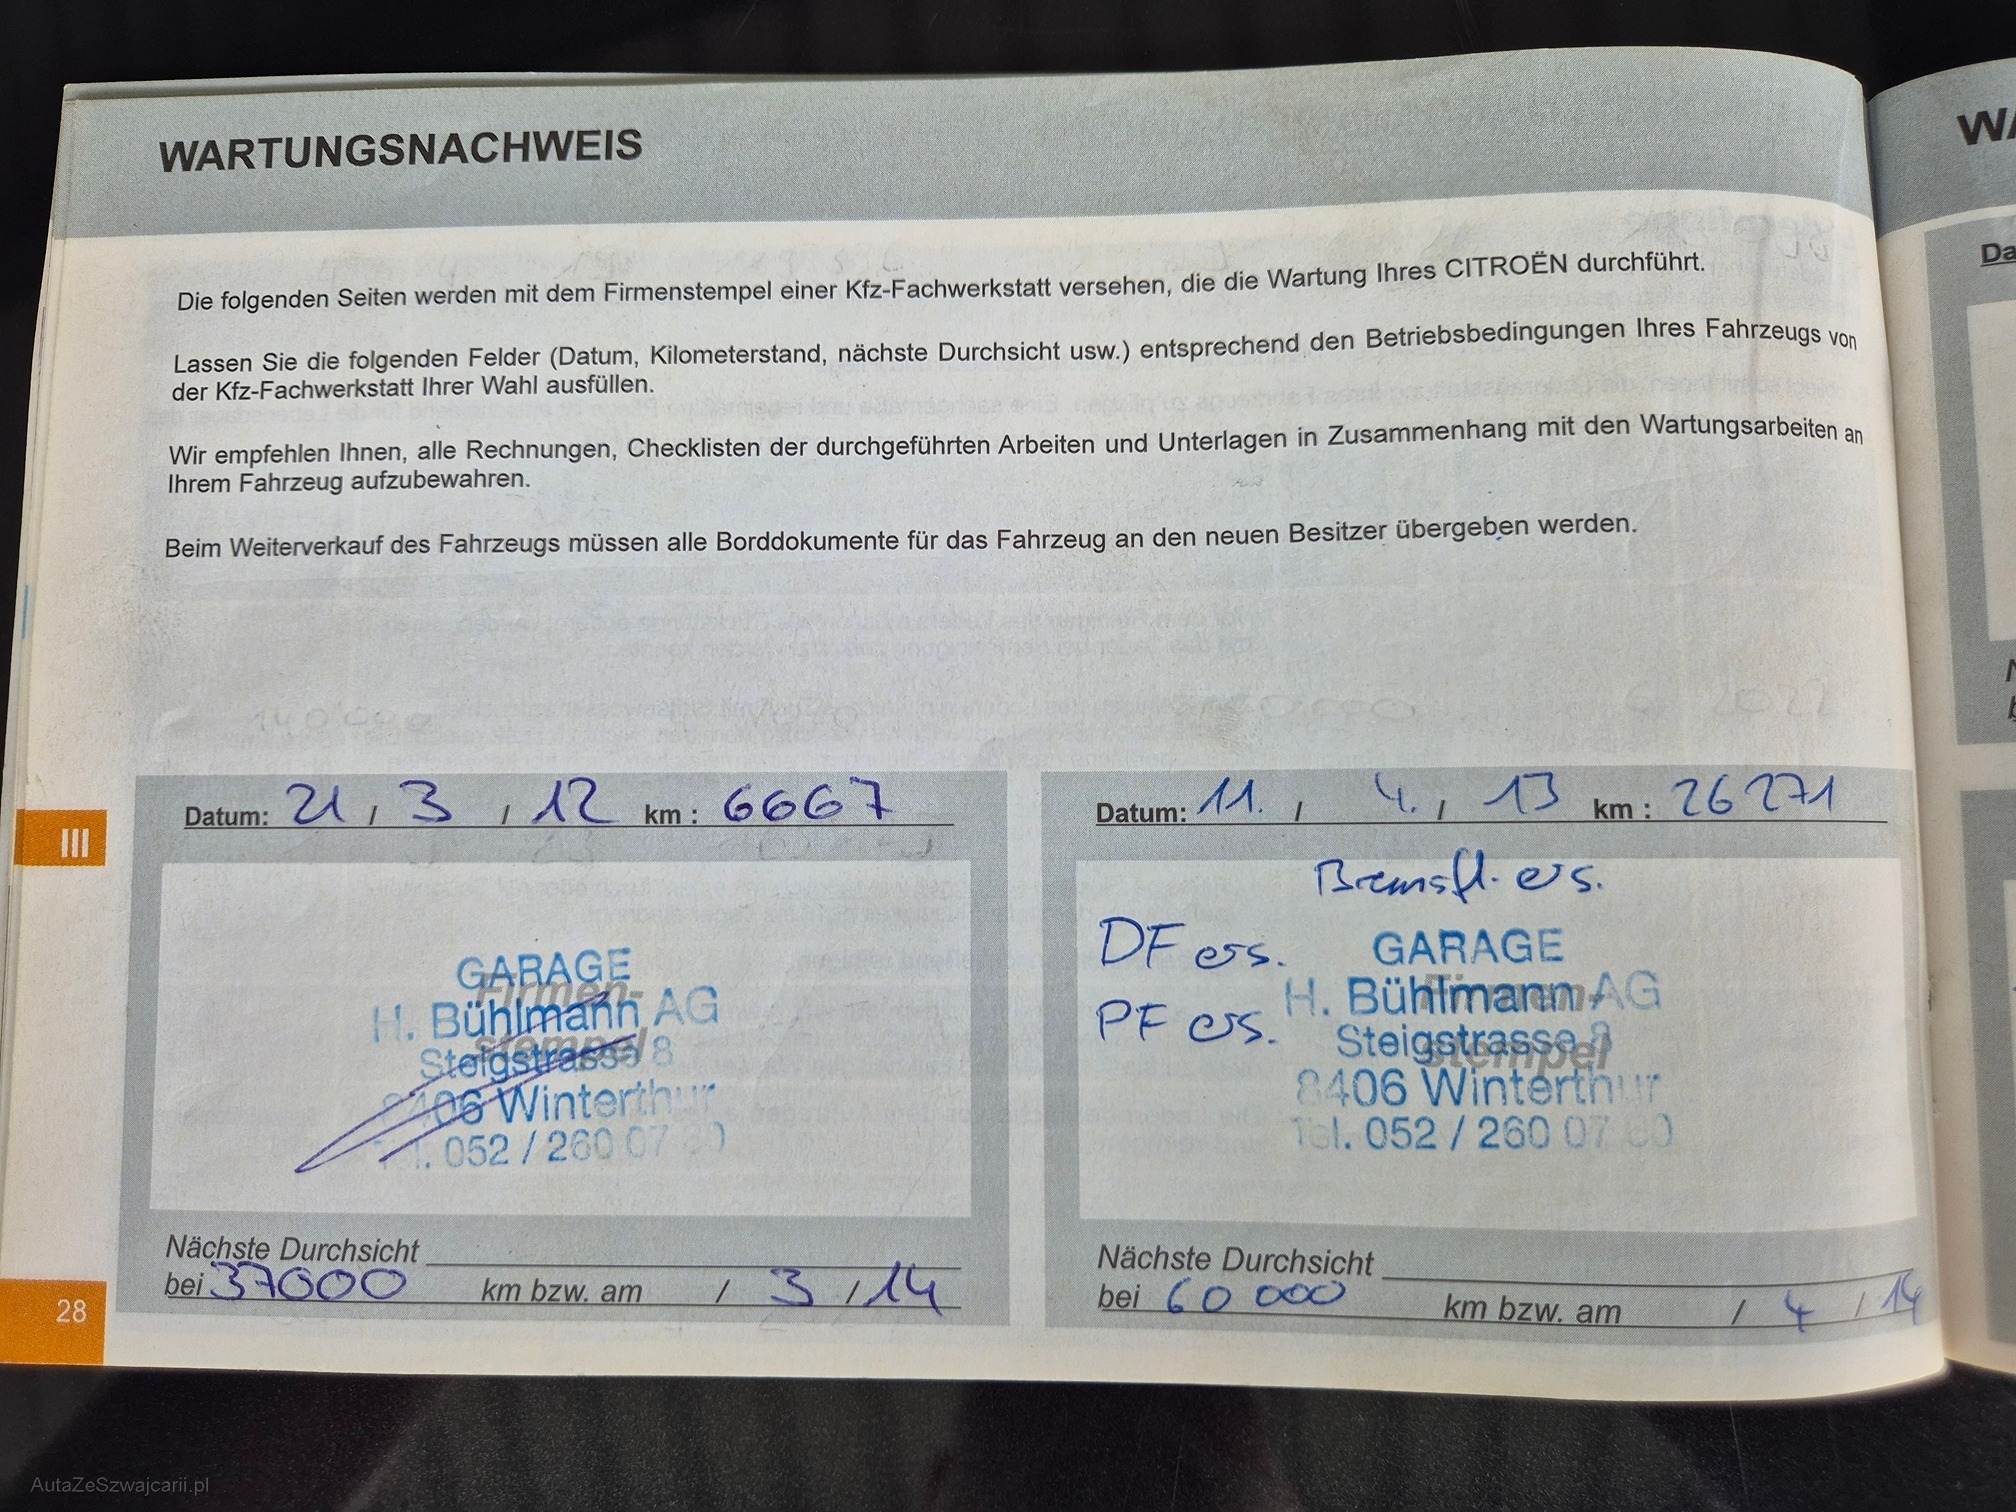 WARTUNGSNACHWEIS
Die folgenden Seiten werden mit dem Firmenstempel einer Kfz-Fachwerkstatt versehen, die die Wartung Ihres CITROËN durchführt.
Lassen Sie die folgenden Felder (Datum, Kilometerstand, nächste Durchsicht usw.) entsprechend den Betriebsbedingungen Ihres Fahrzeugs von
der Kfz-Fachwerkstatt Ihrer Wahl ausfüllen.
Wir empfehlen Ihnen, alle Rechnungen, Checklisten der durchgeführten Arbeiten und Unterlagen in Zusammenhang mit den Wartungsarbeiten an
Ihrem Fahrzeug aufzubewahren.
Beim Weiterverkauf des Fahrzeugs müssen alle Borddokumente für das Fahrzeug an den neuen Besitzer übergeben werden.
III
Datum: 21 / 3 / 12 km : 6667
Firmen-
stempel
GARAGE
H. Bühlmann AG
Steigstrasse 8
8406 Winterthur
Tel. 052 / 260 07 60
Nächste Durchsicht
bei 37000 km bzw. am / 3 / 14
Datum: 11. / 4. / 13 km : 26271
Bremsfl. ers.
DF ers.
PF ers.
Firmen-
stempel
GARAGE
H. Bühlmann AG
Steigstrasse 8
8406 Winterthur
Tel. 052 / 260 07 60
Nächste Durchsicht
bei 60000 km bzw. am / 4 / 14
28
WA
Da
AutaZeSzwajcarii.pl